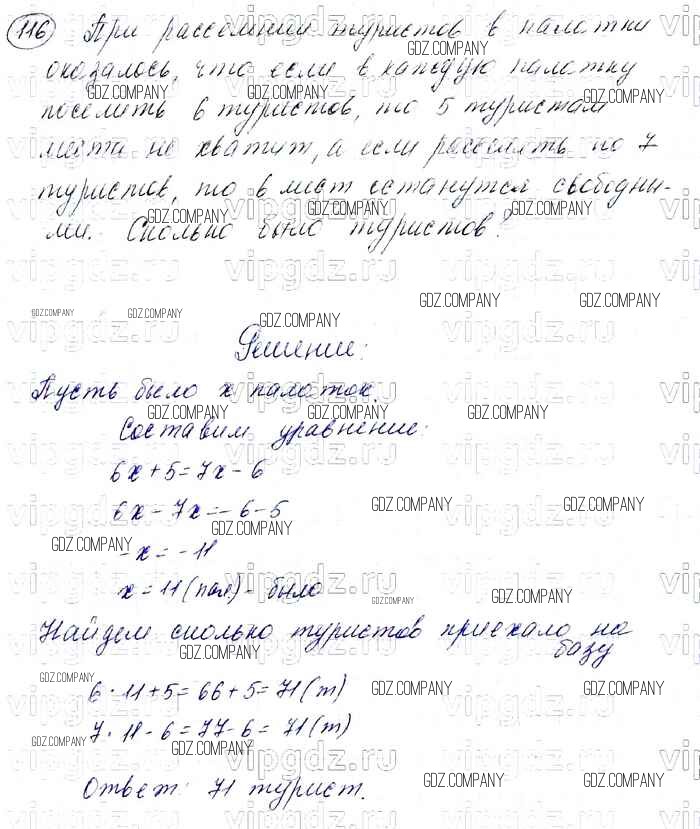 116 При расселении туристов в палатки
оказалось, что если в каждую палатку
поселить 6 туристов, то 5 туристам
места не хватит, а если расселять по 7
туристов, то 6 мест останутся свободны-
ми. Сколько было туристов?
Решение:
Пусть было x палаток.
Составим уравнение:
6x + 5 = 7x - 6
6x - 7x = -6 - 5
-x = -11
x = 11 (пал) - было
Найдем сколько туристов приехало на
базу
6 · 11 + 5 = 66 + 5 = 71 (т)
7 · 11 - 6 = 77 - 6 = 71 (т)
Ответ: 71 турист.